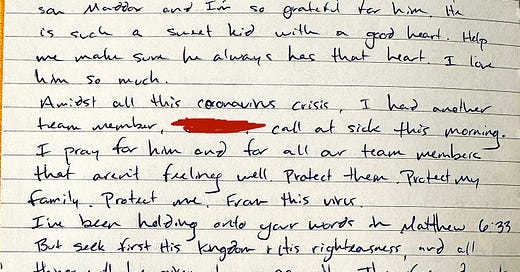 son Maddox and I'm so grateful for him. He
is such a sweet kid with a good heart. Help
me make sure he always has that heart. I love
him so much.
Amidst all this coronavirus crisis, I had another
team member, call at sick this morning.
I pray for him and for all our team members
that aren't feeling well. Protect them. Protect my
family. Protect me. From this virus.
I've been holding onto your words in Matthew 6:33
But seek first His kingdom + His righteousness, and all